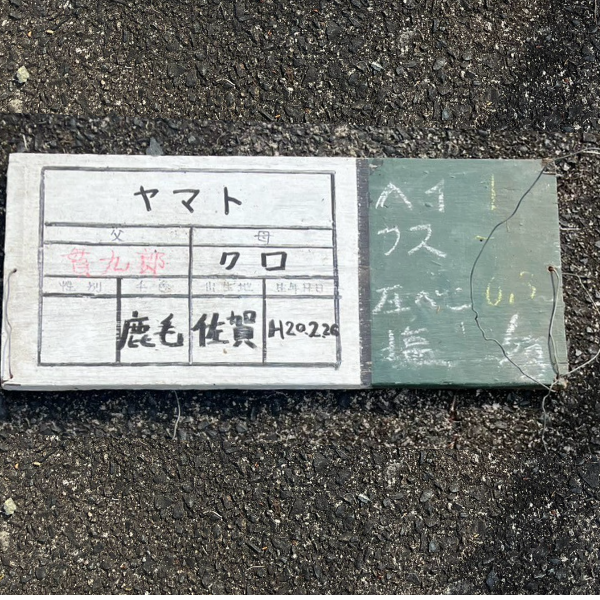 ヤマト
父 母
九郎 クロ
性別 毛色 出生地 生年月日
鹿毛 佐賀 H20.2.26
ヘイ 1
フス
圧ペン 0.5
塩